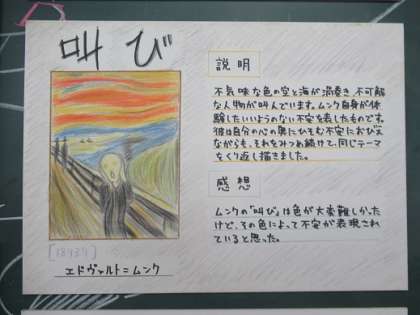 叫び
説明
不気味な色の空と海が渦巻き、不可解
な人物が叫んでいます。ムンク自身が体
験したいいようのない不安を表したものです。
彼は自分の心の奥にひそむ不安におびえ
ながらも、それをみつめ続けて、同じテーマ
をくり返し描きました。
感想
ムンクの「叫び」は色が大変難しかった
けど、その色によって不安が表現され
ていると思った。
[1893年]
エドヴァルト=ムンク